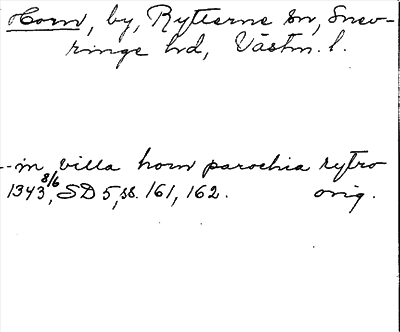 Horn, by, Rytterne sn, Snev-
ringe hd, Västm. l.
--in villa horn parochia rytro
1343 8/6, SD 5, ss. 161, 162. orig.